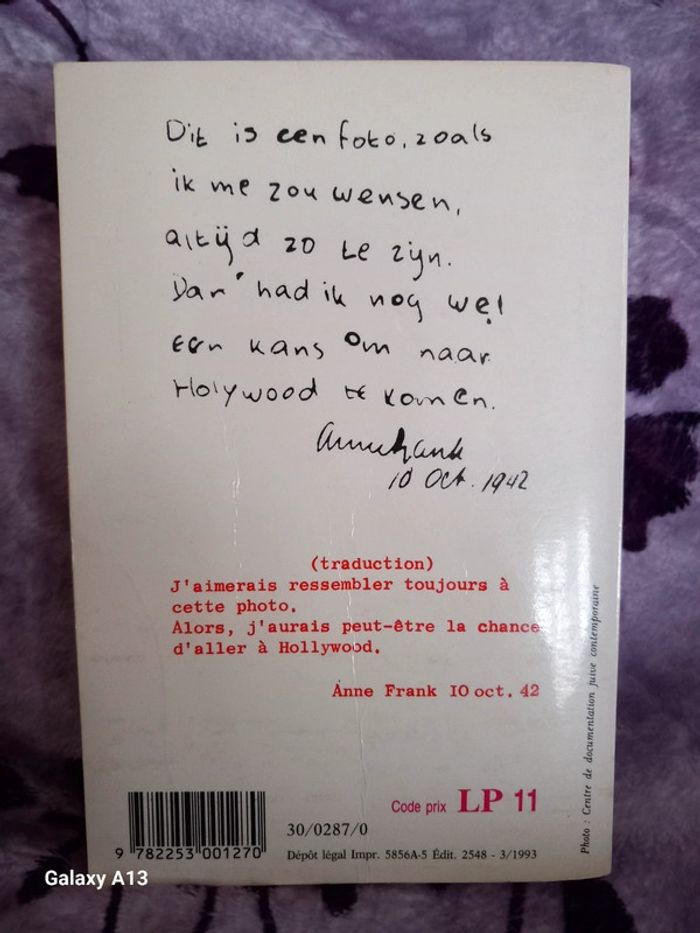 Dit is een foto, zoals
ik me zou wensen,
altijd zo te zijn.
Dan had ik nog wel
een kans om naar
Holywood te komen.
AnneFrank
10 Oct. 1942
(traduction)
J'aimerais ressembler toujours à
cette photo.
Alors, j'aurais peut-être la chance
d'aller à Hollywood.
Anne Frank IO oct. 42
Photo : Centre de documentation juive contemporaine
Code prix LP 11
30/0287/0
9 782253 001270
Dépôt légal Impr. 5856A-5 Édit. 2548 - 3/1993
Galaxy A13